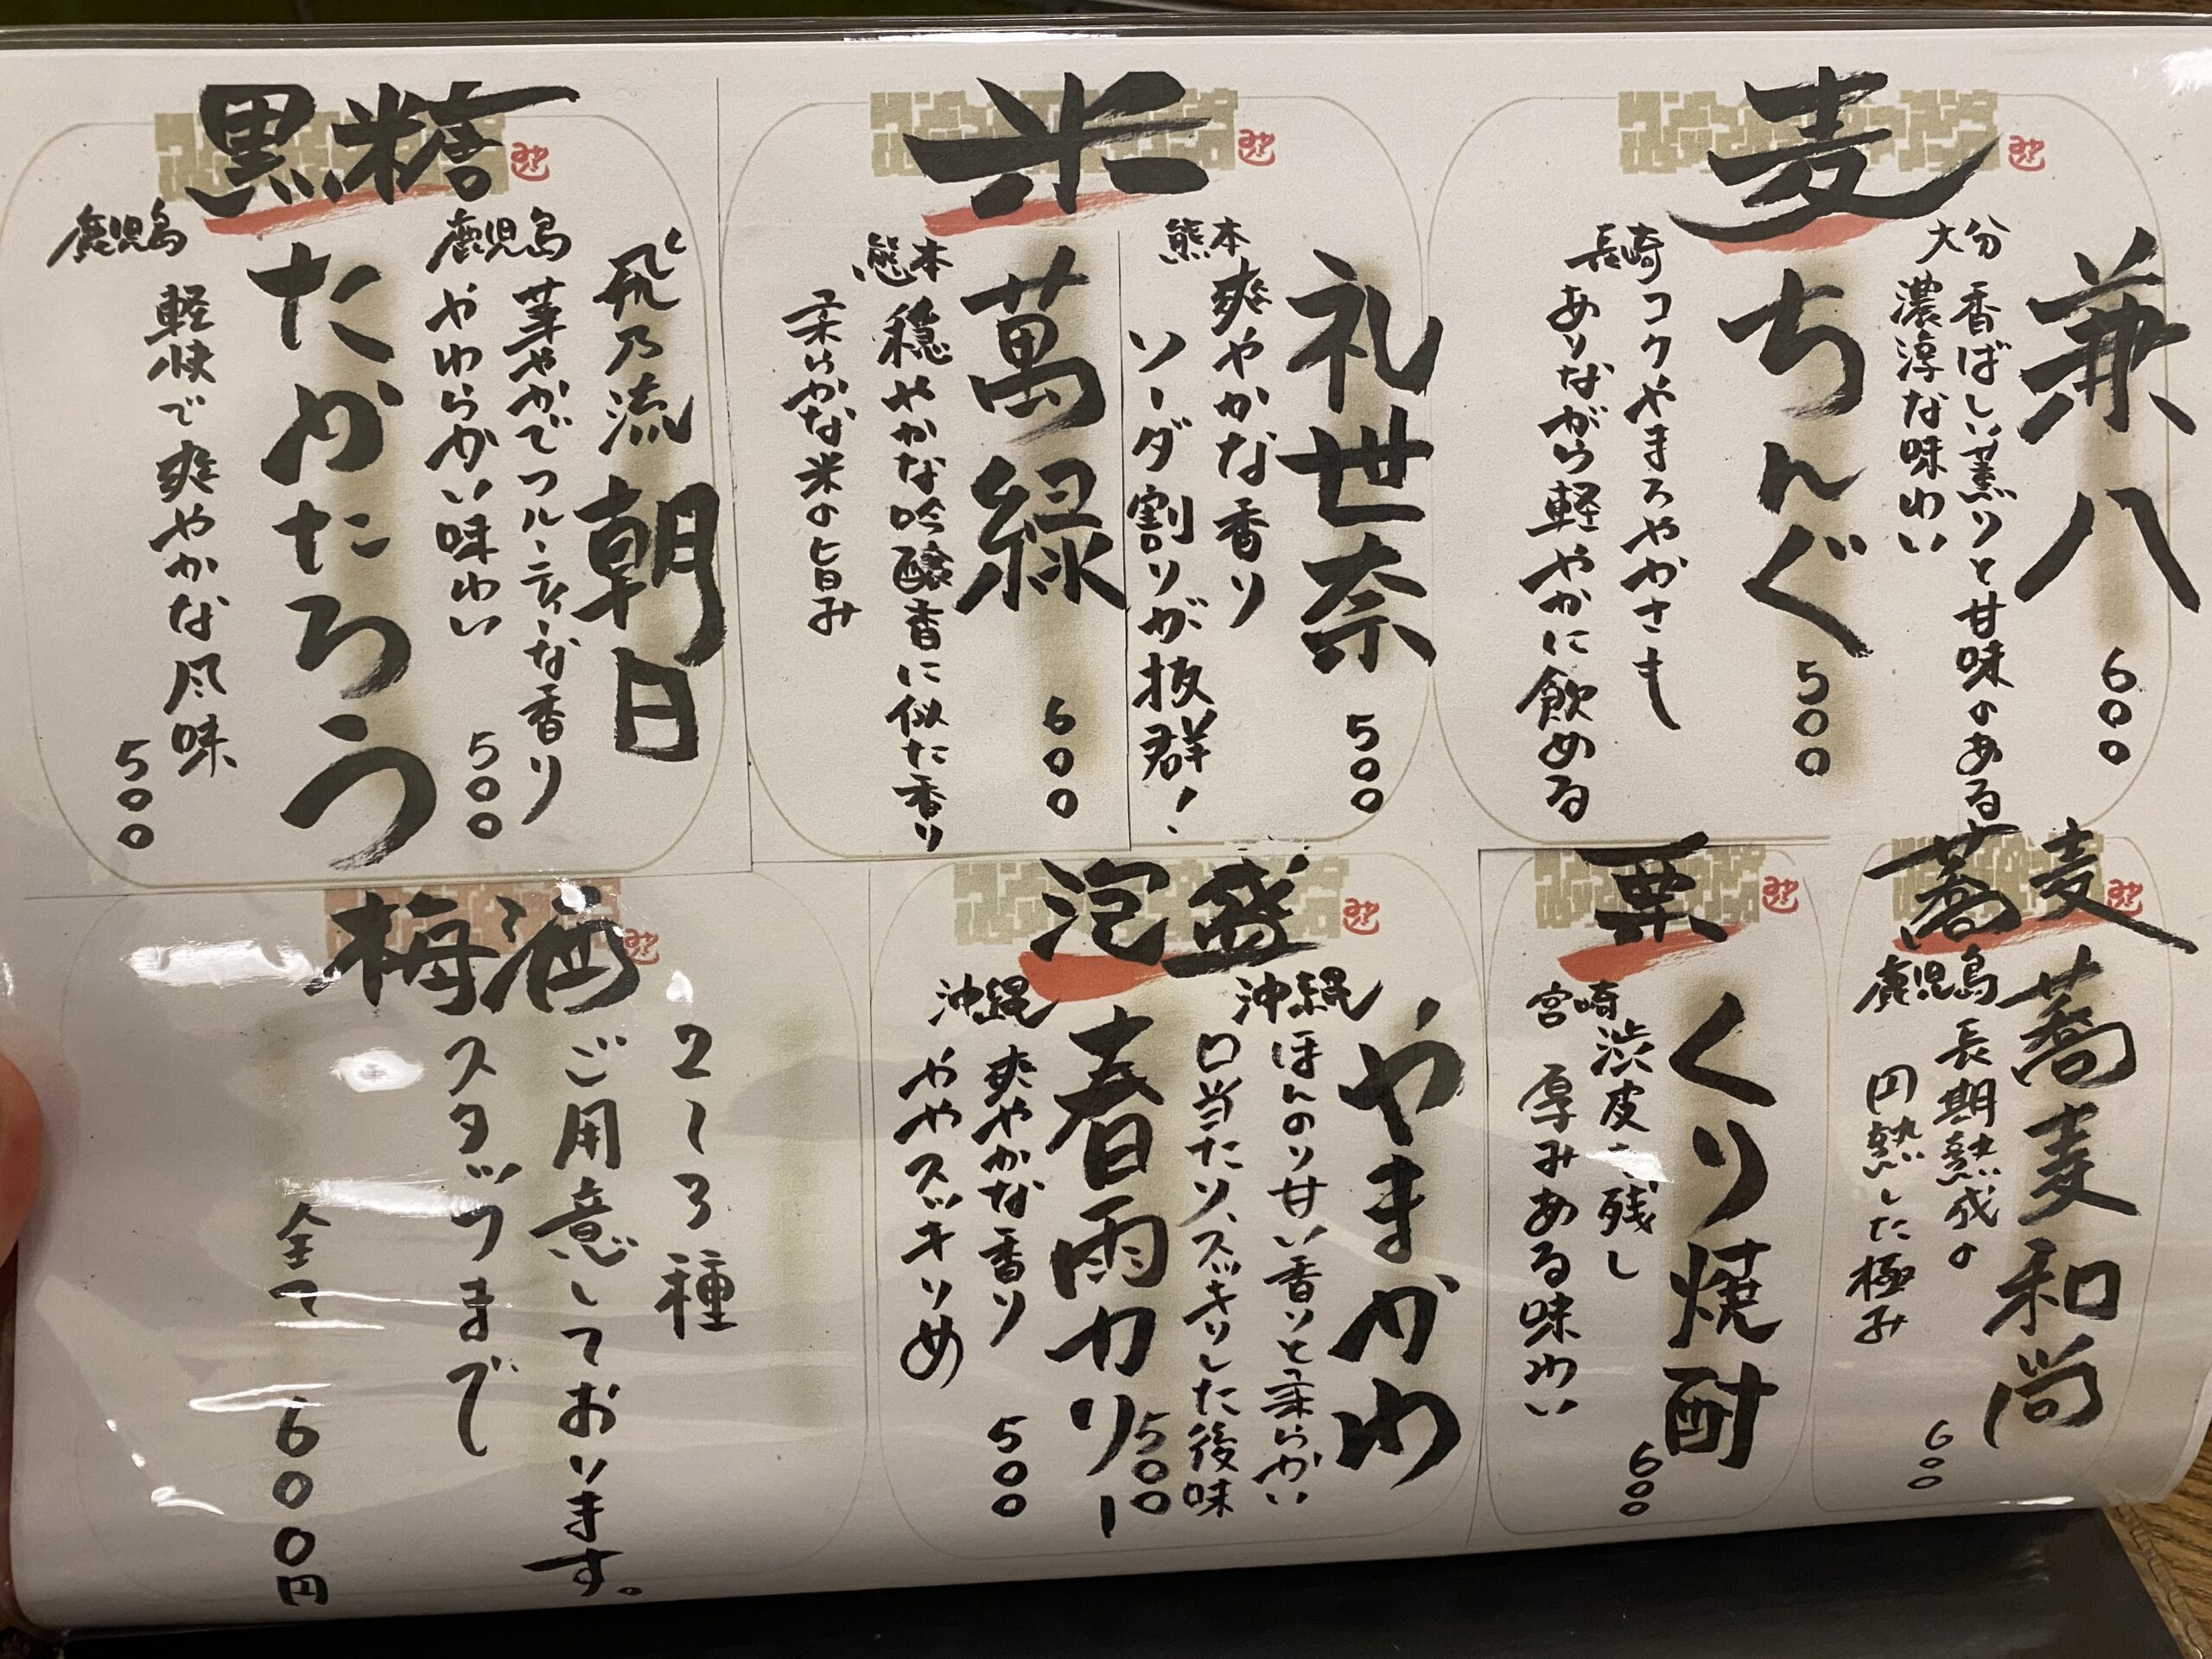 麦
兼八
大分
香ばしい薫りと甘味のある
濃淳な味わい
600
ちんぐ
長崎
コクやまろやかさも
ありながら軽やかに飲める
500
米
礼世奈
熊本
爽やかな香り
ソーダ割りが抜群!
500
萬緑
熊本
穏やかな吟醸香に似た香り
柔らかな米の旨み
600
黒糖
飛乃流朝日
鹿児島
華やかでフルーティーな香り
やわらかい味わい
500
たかたろう
鹿児島
軽快で爽やかな風味
500
蕎麦
蕎麦和尚
鹿児島
長期熟成の
円熟した極み
600
栗
くり焼酎
宮崎
渋皮を残し
厚みある味わい
600
泡盛
やまかわ
沖縄
ほんのり甘い香りと柔らかい
口当たり、スッキリした後味
500
春雨カリー
沖縄
爽やかな香り
ややスッキリめ
500
梅酒
2〜3種
ご用意しております。
スタッフまで
全て 600円